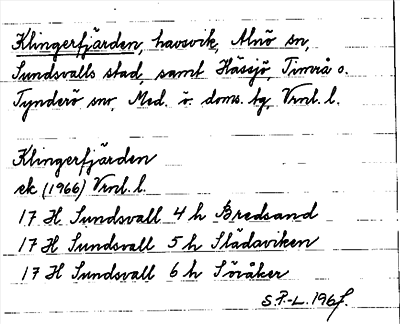 Klingerfjärden, havsvik, Alnö sn,
Sundsvalls stad, samt Hässjö, Timrå o.
Tynderö snr, Med. ö. doms. tg, Vrnl. l.
Klingerfjärden
ek (1966) Vrnl. l.
17 H Sundsvall 4 h Bredsand
17 H Sundsvall 5 h Slädaviken
17 H Sundsvall 6 h Söråker
S.P.-L. 1967.